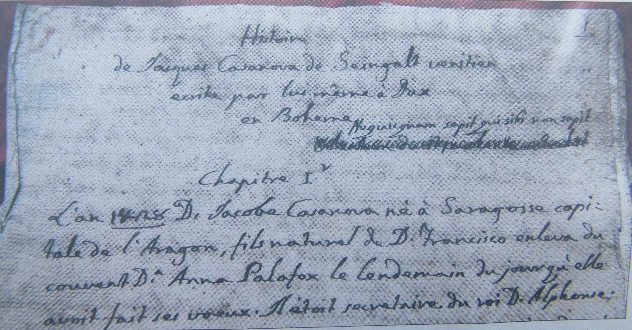 Histoire
de Jacques Casanova de Seingalt venitien
ecrite par lui même à Dux
en Boheme
Nequicquam sapit qui sibi non sapit
Chapitre I.r
L'an D. Jacobe Casanova né à Saragosse capi-
tale de l'Aragon, fils naturel de D. Francisco enleva du
couvent D.a Anna Palafox le lendemain du jour qu'elle
avoit fait ses voeux. Il étoit secretaire du roi D. Alphonse.